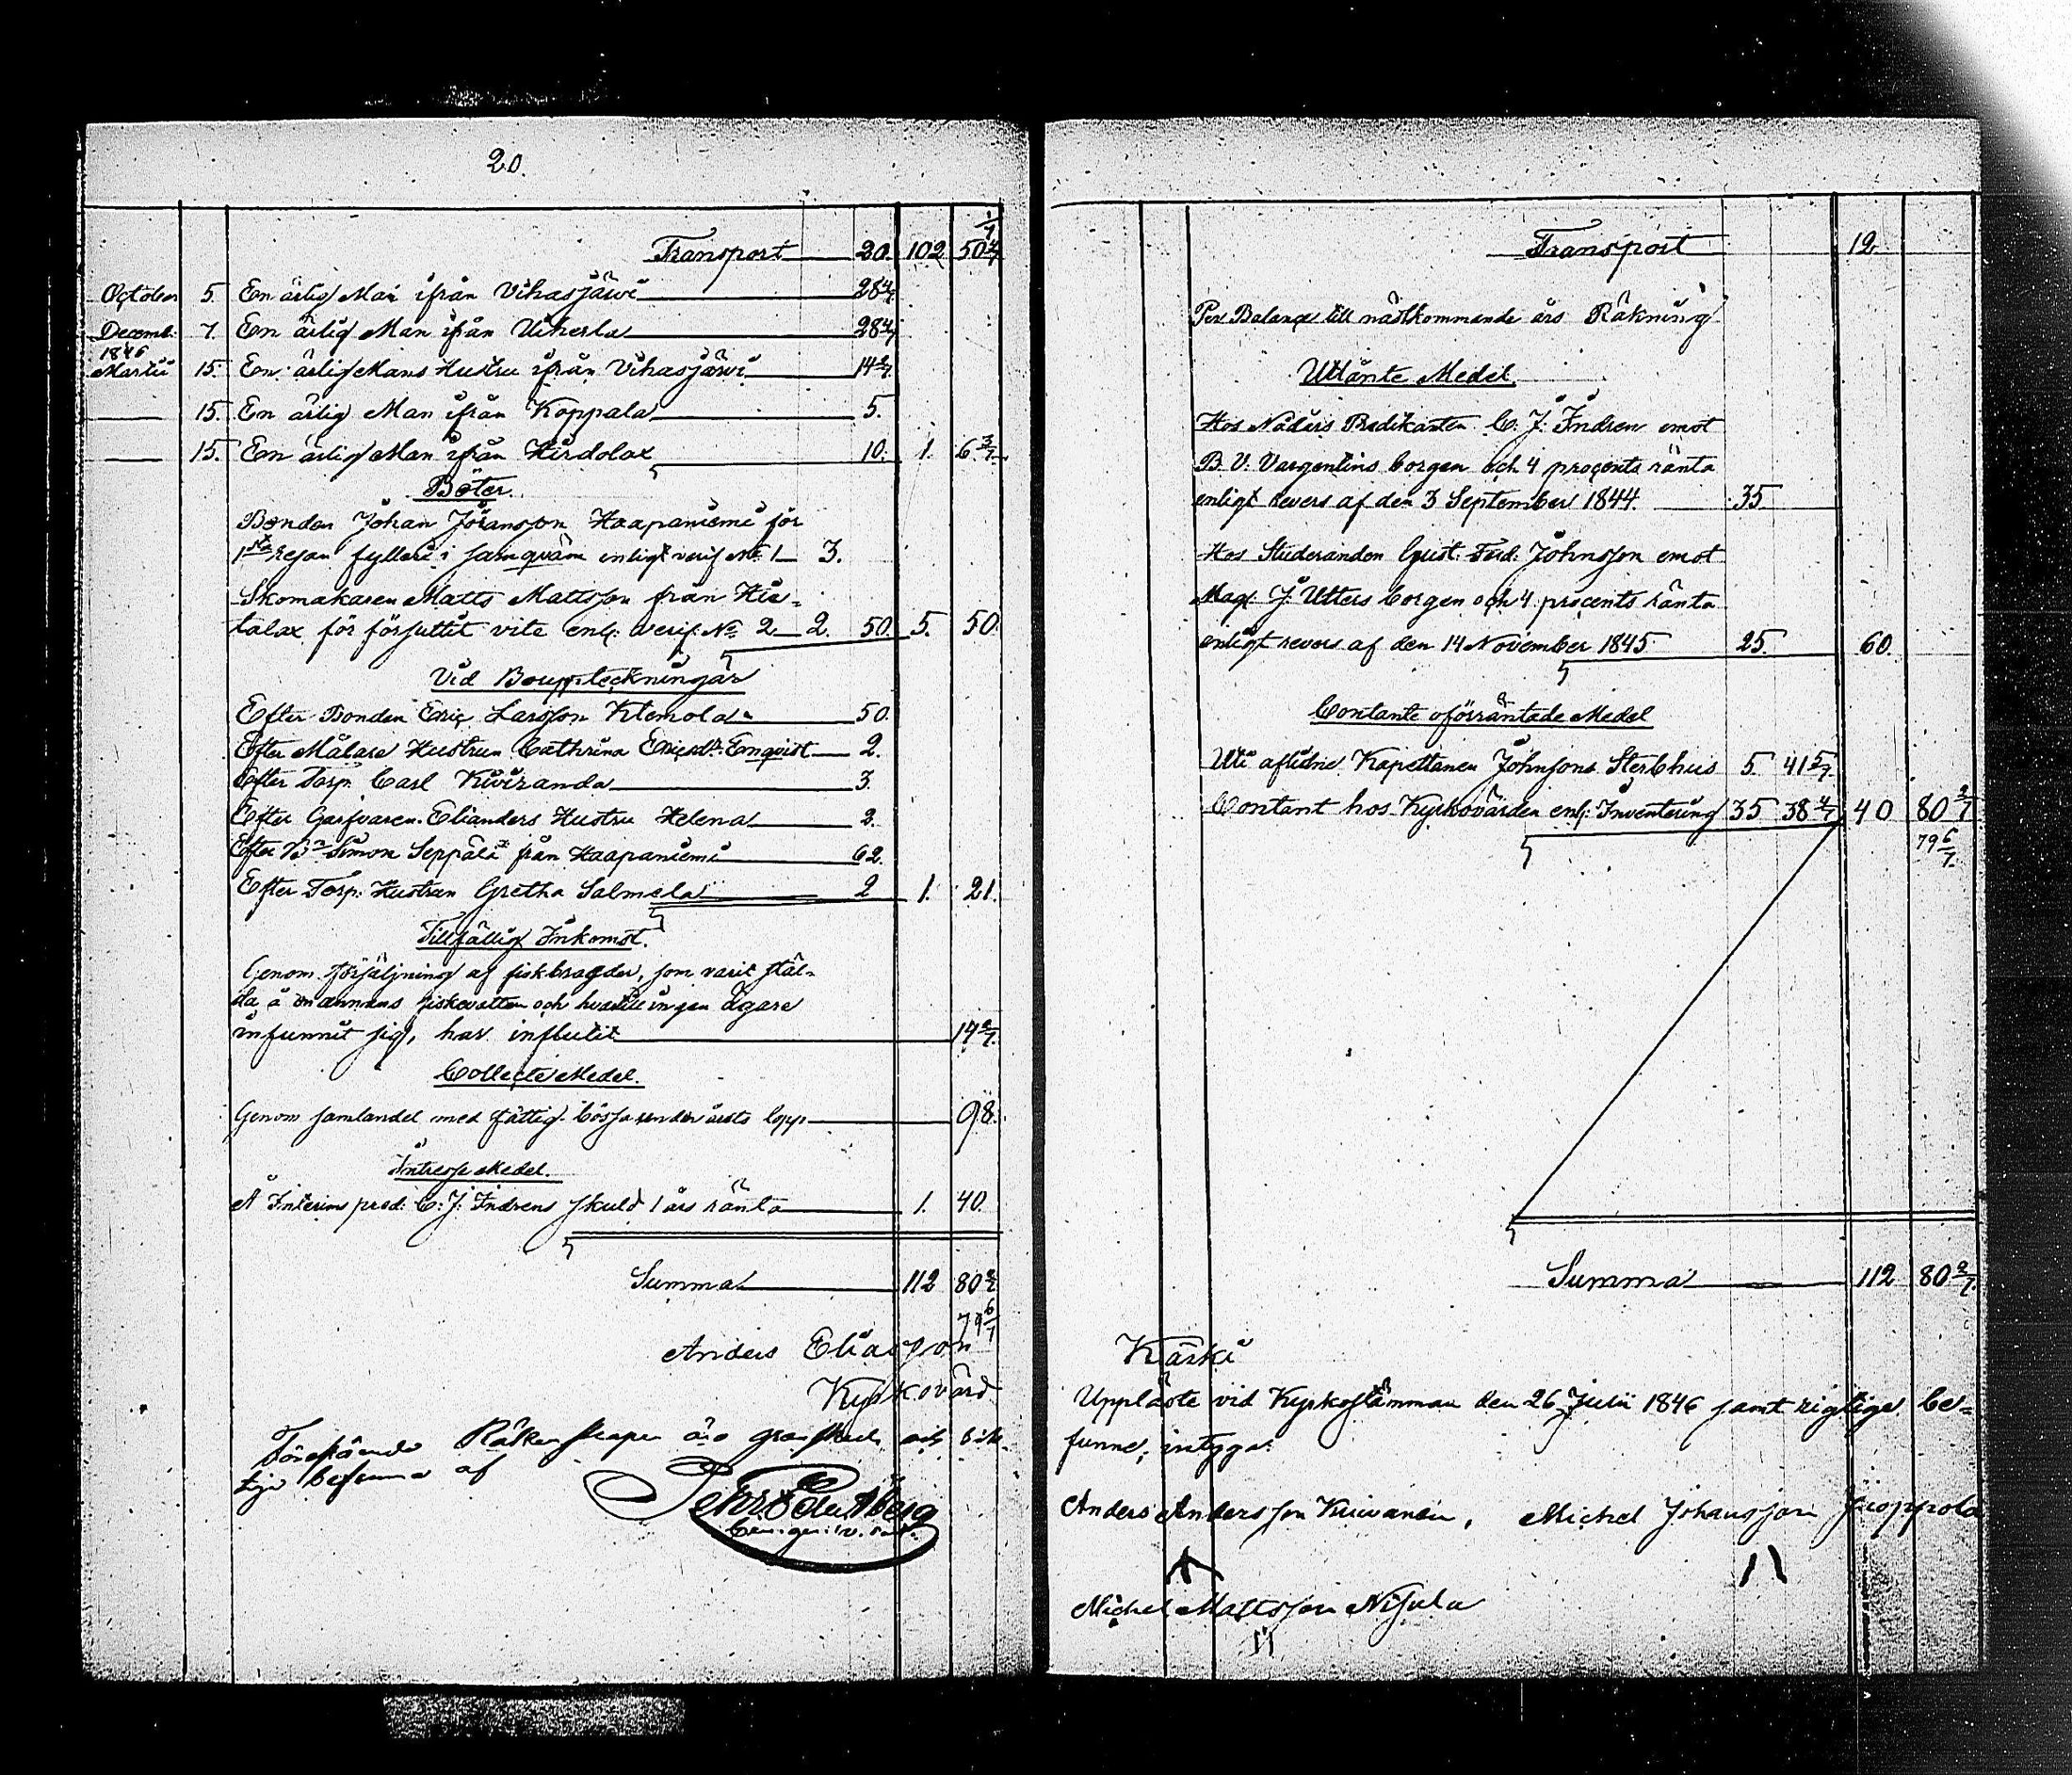 20.
Transport 20. 102 50 4/7 1/7
October 5. En ärlig Man ifrån Vihasjärvi 28 4/7
Decemb. 7. En ärlig Man ifrån Uiherla 28 4/7
1846
Martii 15. En ärlig Mans Hustru ifrån Vihasjärvi 14 2/7
15. En ärlig Man ifrån Koppala 5.
15. En ärlig Man ifrån Hirdolax 10. 1. 6 3/7
Böter.
Bonden Johan Jöransson Haapaniemi för
1sta resan fylleri i samqväm enligt verif No 1 3.
Skomakaren Matts Mattsson från Hie-
talax för försuttit vite enl. verif. No 2 2. 50. 5. 50.
Vid Bouppteckningar
Efter Bonden Eric Larsson Klemola 50.
Efter Målare Hustrun Cathrina Ericsdr Emqvist 2.
Efter Torp. Carl Kiviranda 3.
Efter Garfvaren Elianders Hustru Helena 2.
Efter Bn Simon Seppälä från Haapaniemi 62.
Efter Torp. Hustrun Gretha Salmela 2 1. 21.
Tillfällig Inkomst.
Genom försäljning af fiskbragder, som varit stäl-
da å en annans fiskevatten och hvartill ingen ägare
infunnit sig, har influtit 14 2/7
Collecte Medel.
Genom samlandet med fattig-bössa under årets lopp 98.
Intresse Medel.
Å Interims pred. C. J. Indrens skuld 1 års ränta 1. 40.
Summa 112 80 2/7
79 6/7
Anders Eliasson
Kyrkovärd
Förestående Räkenskaper äro granskade och rik-
tige befunne af
Transport 12.
Per Balance till nästkommande års Räkning
Utlånte Medel.
Hos Nådårs Predikanten C. J. Indren emot
B. V. Vargentins borgen och 4 procents ränta
enligt revers af den 3 September 1844. 35.
Hos Studeranden Gust. Ferd. Johnsson emot
Mag. J. Utters borgen och 4 procents ränta
enligt revers af den 14 November 1845 25. 60.
Contante oförräntade Medel
Uti aflidne Kapellanen Johnsons Sterbhus 5. 41 5/7
Contant hos Kyrkovärden enl. Inventering 35 38 4/7 40 80 2/7
79 6/7
Summa 112 80 2/7
Kärki
Uppläste vid Kyrkostämman den 26 Julii 1846 samt rigtige be-
funne, intyga:
Anders Andersson Kuivanen, Michel Johansson
Michel Mattsson Nisula